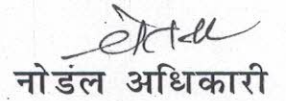 नोडंल अधिकारी